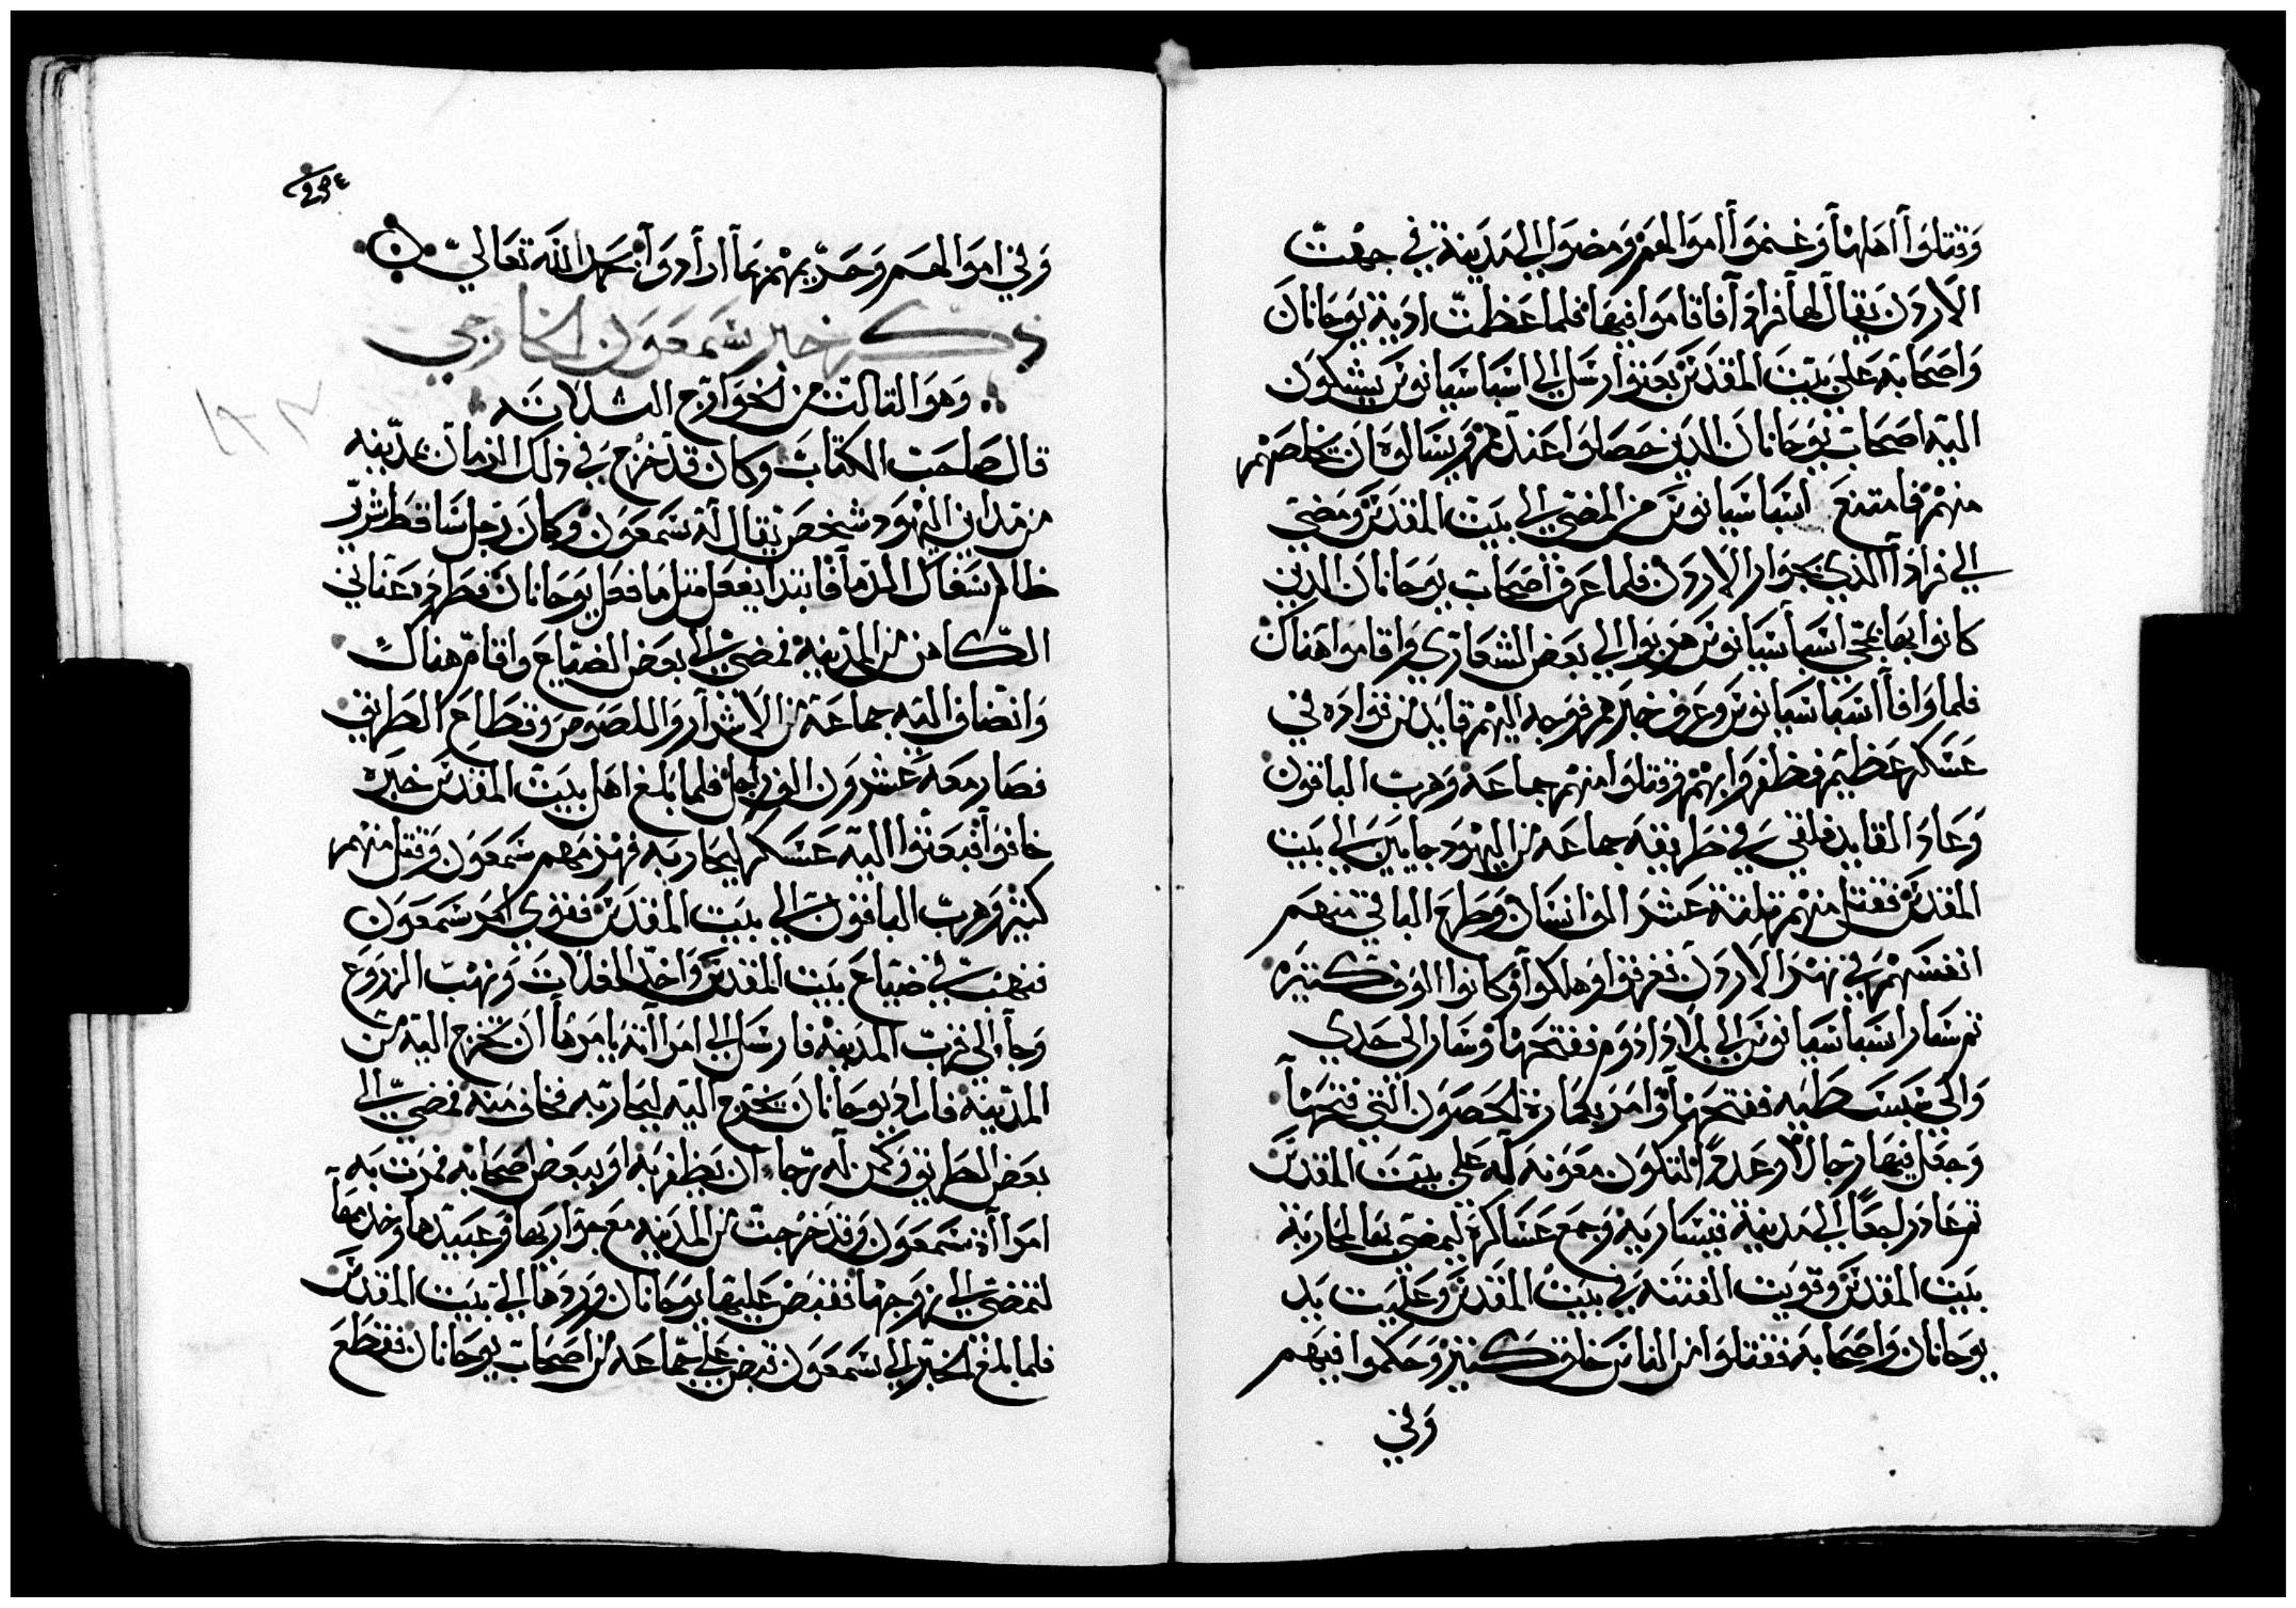 وقتلوا اهلها وغنموا اموالهم ومضوا الي مدينة في جهت
الاردن يقال لها فراوا فاقاموا فيها فلما عظمت اذية يوحانان
واصحابه علي بيت المقدس بعثوا ارسل الي اسباسيانوس يشكون
اليه اصحاب يوحانان الدين حصلوا عندهم ويسالوه ان يخلصهم
منهم فامتنع اسباسيانوس من المضي الي بيت المقدس ومضي
الي فراوا الذي بجوار الاردن فلما عرف اصحاب يوحانان الدين
كانوا بها بمجي اسباسيانوس هربوا الي بعض الشعاري واقاموا هناك
فلما وافا اسباسيانوس وعرف خبرهم فوجه اليهم قايد من قواده في
عسكر عظيم فظفروا بهم وقتلوا منهم جماعه وهرب الباقون
وعاد القايد فلقي في طريقه جماعه من اليهود جايين الي بيت
المقدس فقتل منهم تلتة عشر الف انسان وطرح الباقي منهم
انفسهم في نهر الاردن فغرقوا وهلكوا وكانوا الوف كتيره
تم سار اسباسيانوس الي بلاد ادوم ففتحها وسار الى حدي
والي سبسطيه ففتحها وامر بعمارة الحصون التي فتحها
وجعل فيها رجالا وعددا لتكون معونه له علي بيت المقدس
تم عاد راجعا الي مدينة قيساريه وجمع عساكره ليمضي بها لمحاربة
بيت المقدس وقويت الفتنه في بيت المقدس وعليت يد
يوحانان واصحابه فقتلوا من الناس خلق كتير وحكموا فيهم
وفي
وفي اموالهم وحريمهم بما ارادوا بحمد الله تعالي
ذكر خبر شمعون الخارجي
وهو التالت من الخوارج التلاته
قال صاحب الكتاب وكان قد خرج في ذلك الزمان بمدينه
من مداين اليهود شخص يقال له شمعون وكان رجل ساقط شرير
ظالم سفاك الدما فابتدا يفعل متل ما فعل يوحانان فطرده عناني
الكاهن من المدينه فمضي الي بعض الضياع واقام هناك
وانضاف اليه جماعة من الاشرار واللصوص وقطاع الطريق
فصار معه عشرون الف رجل فلما بلغ اهل بيت المقدس خبره
خافوا فبعتوا اليه عسكر ليحاربه فهزمهم شمعون وقتل منهم
كتير وهرب الباقون الي بيت المقدس فقوي امر شمعون
فنهب في ضياع بيت المقدس واخد الغلات ونهب الزروع
وجا الى قرب المدينه فارسل الي امراته يامرها ان تخرج اليه من
المدينه فاراد يوحانان يخرج اليه ليحاربه فخاف منه فمضي الي
بعض الطريق وكمن له رجاء ان يظفر به او ببعض اصحابه فمرت به
امراة شمعون وقد خرجت من المدينه مع جوارها وعبيدها وخدمها
لتمضي الي زوجها فقبض عليها يوحانان وردها الي بيت المقدس
فلما بلغ الخبر الي شمعون قبض علي جماعه من اصحاب يوحانان فقطع